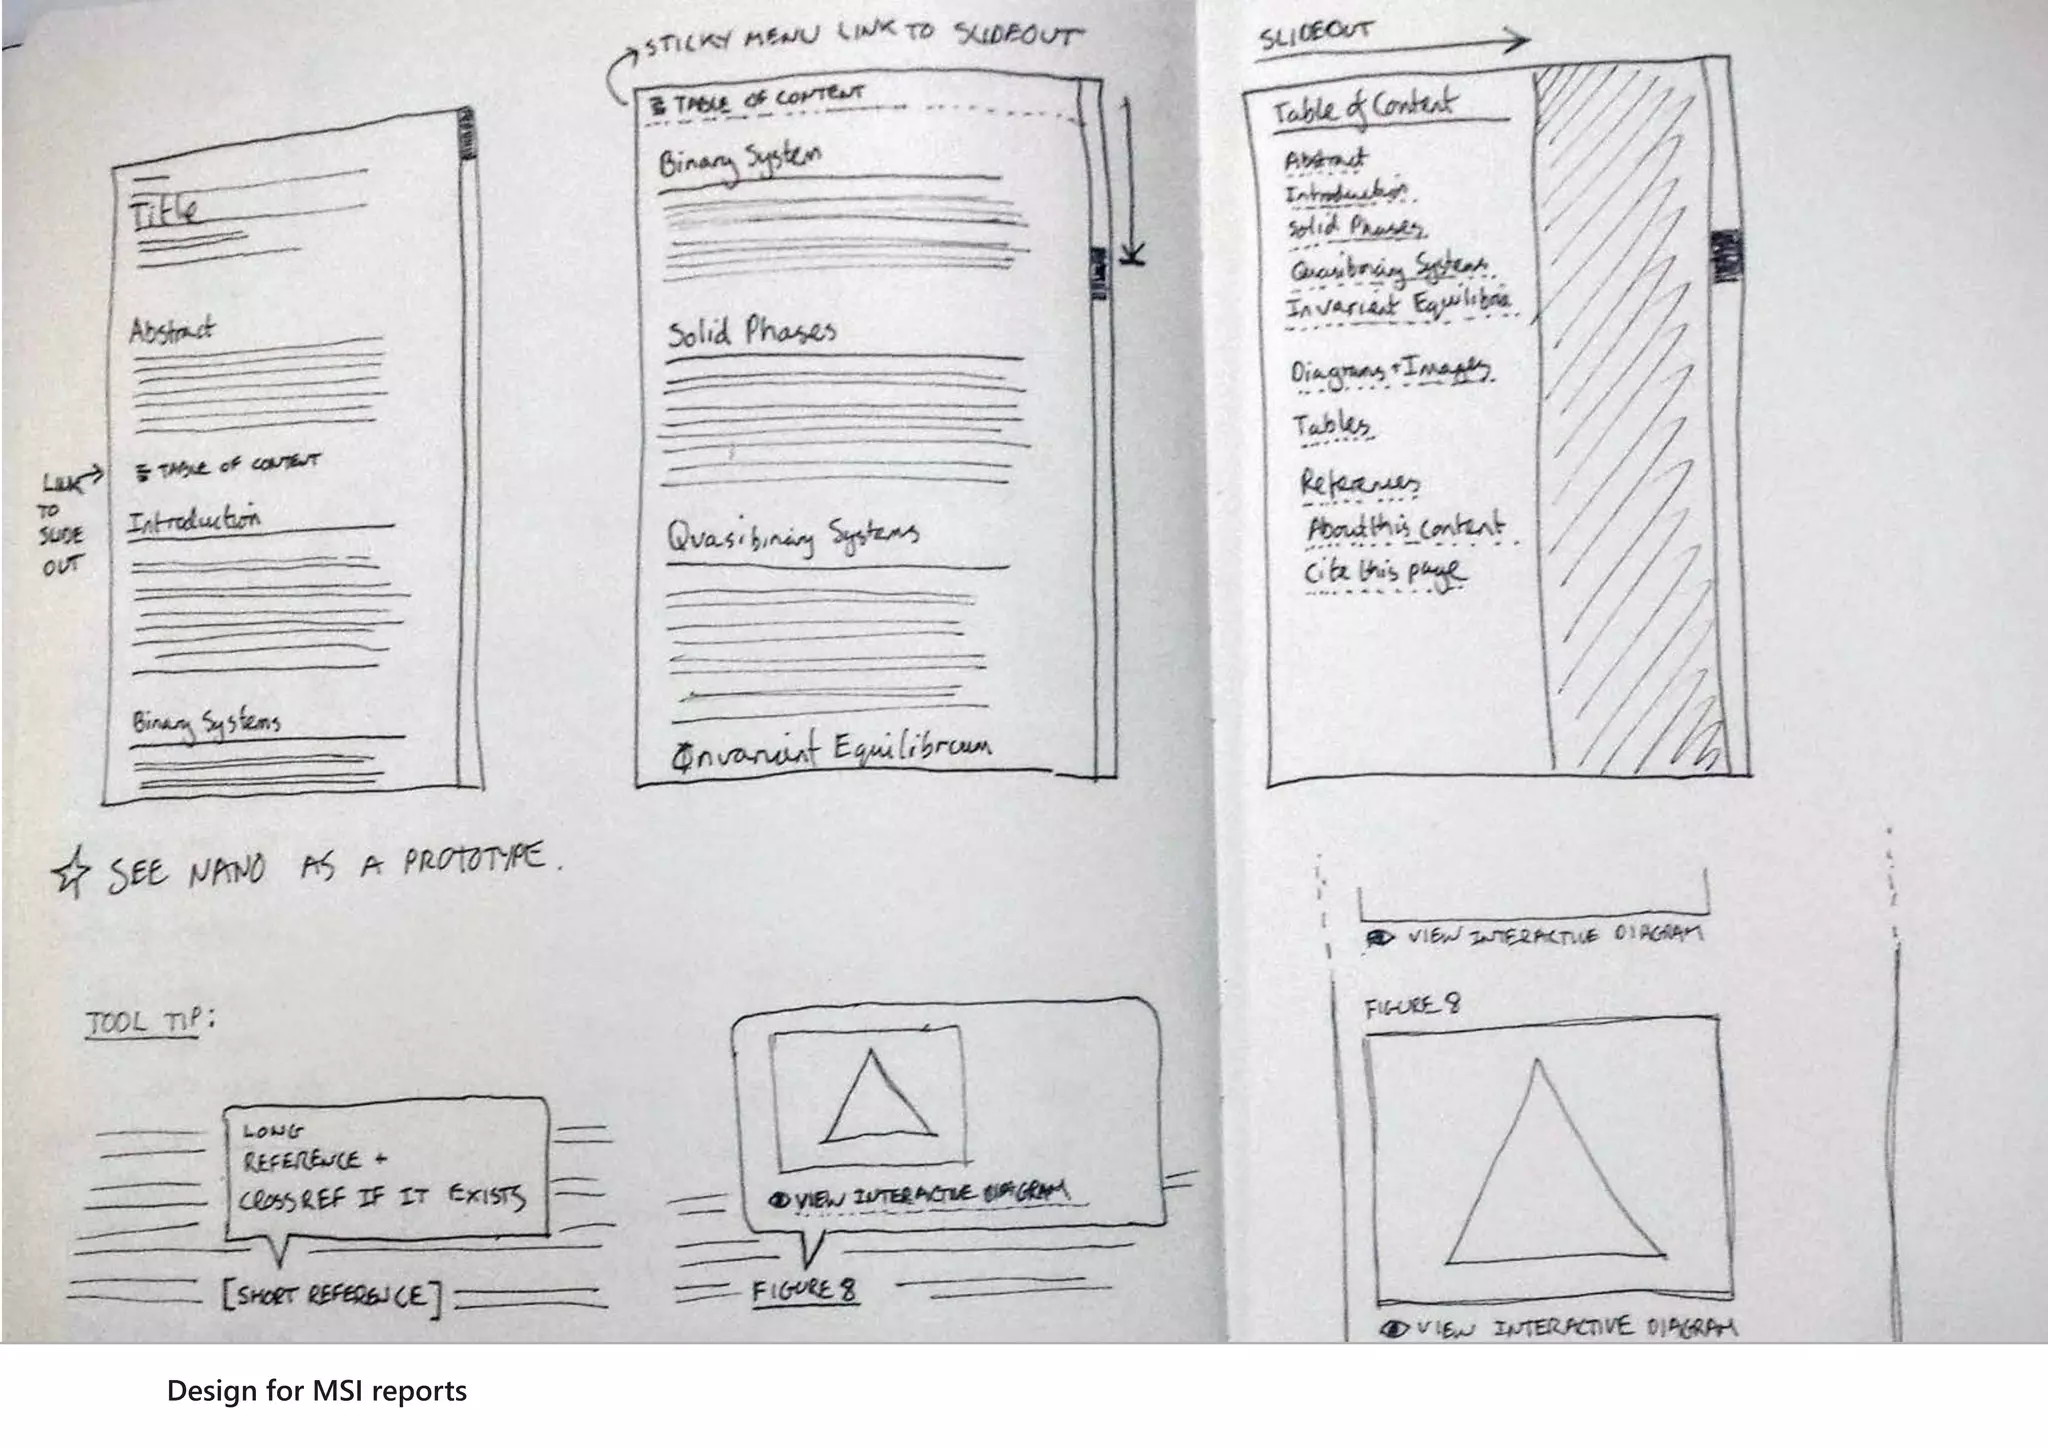 STICKY MENU LINK TO SLIDEOUT
SLIDEOUT
Title
Abstract
LINK
TO
SLIDE
OUT
TABLE OF CONTENT
Introduction
Binary Systems
TABLE OF CONTENT
Binary System
Solid Phases
Quasibinary Systems
Invariant Equilibrium
Table of Content
Abstract
Introduction
Solid Phases
Quasibinary Systems
Invariant Equilibria
Diagrams + Images
Tables
References
About this content
Cite this page
SEE NANO AS A PROTOTYPE.
TOOL TIP:
LONG
REFERENCE +
CROSSREF IF IT EXISTS
[SHORT REFERENCE]
VIEW INTERACTIVE DIAGRAM
FIGURE 8
VIEW INTERACTIVE DIAGRAM
FIGURE 8
VIEW INTERACTIVE DIAGRAM
Design for MSI reports